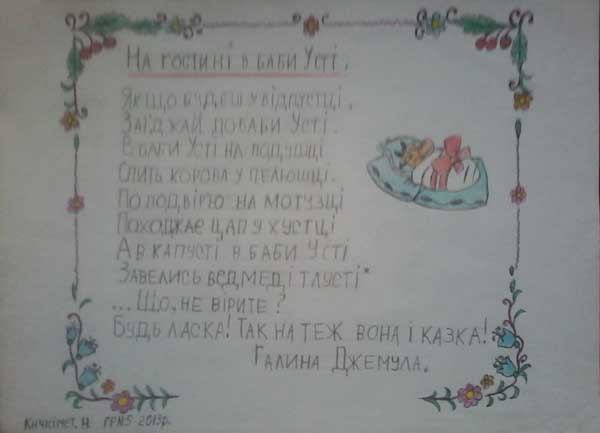 На гостині в баби Усті.
Якщо будеш у відпустці,
Заїджай до баби Усті.
В баби Усті на подушці
Спить корова у пелюшці.
По подвірю на мотузці
Походжає цап у хустці
А в капусті в баби Усті
Завелись ведмеді тлусті*
... Що, не вірите?
Будь ласка! Так на теж вона і казка!
Галина Джемула.
Кичкімет. Н. ГР№5 2013р.